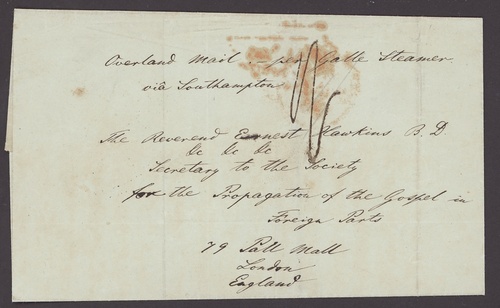 Overland Mail :- per Galle Steamer
viâ Southampton
The Reverend Ernest Hawkins B.D
&c &c &c
Secretary to the Society
for the Propagation of the Gospel in
Foreign Parts
79 Pall Mall
London
England